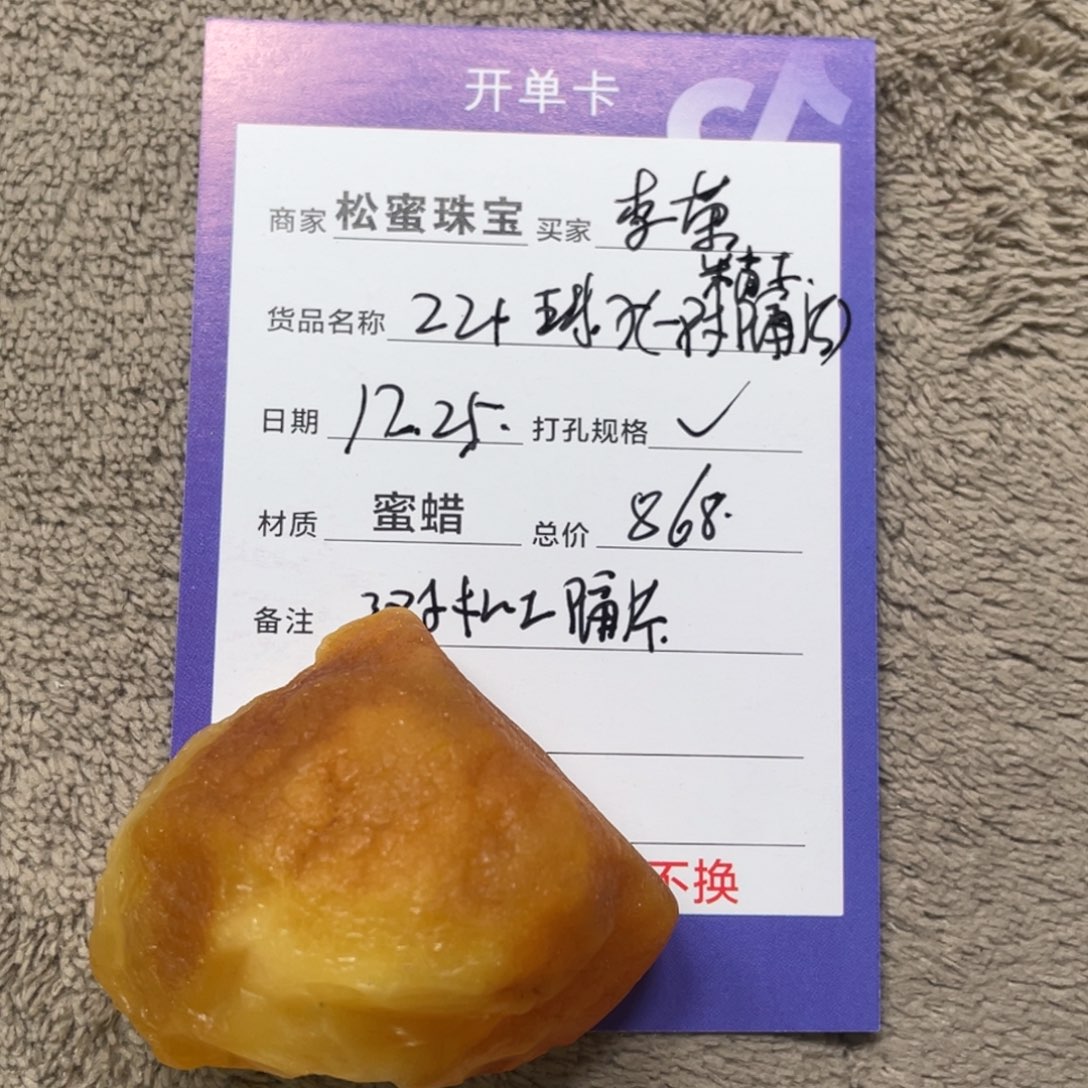 开单卡
商家 松蜜珠宝 买家 李荣
精工
货品名称 22+ 珠
隔片)
日期 12.25. 打孔规格 ✓
材质 蜜蜡 总价 868.
备注 机工隔片.
不换